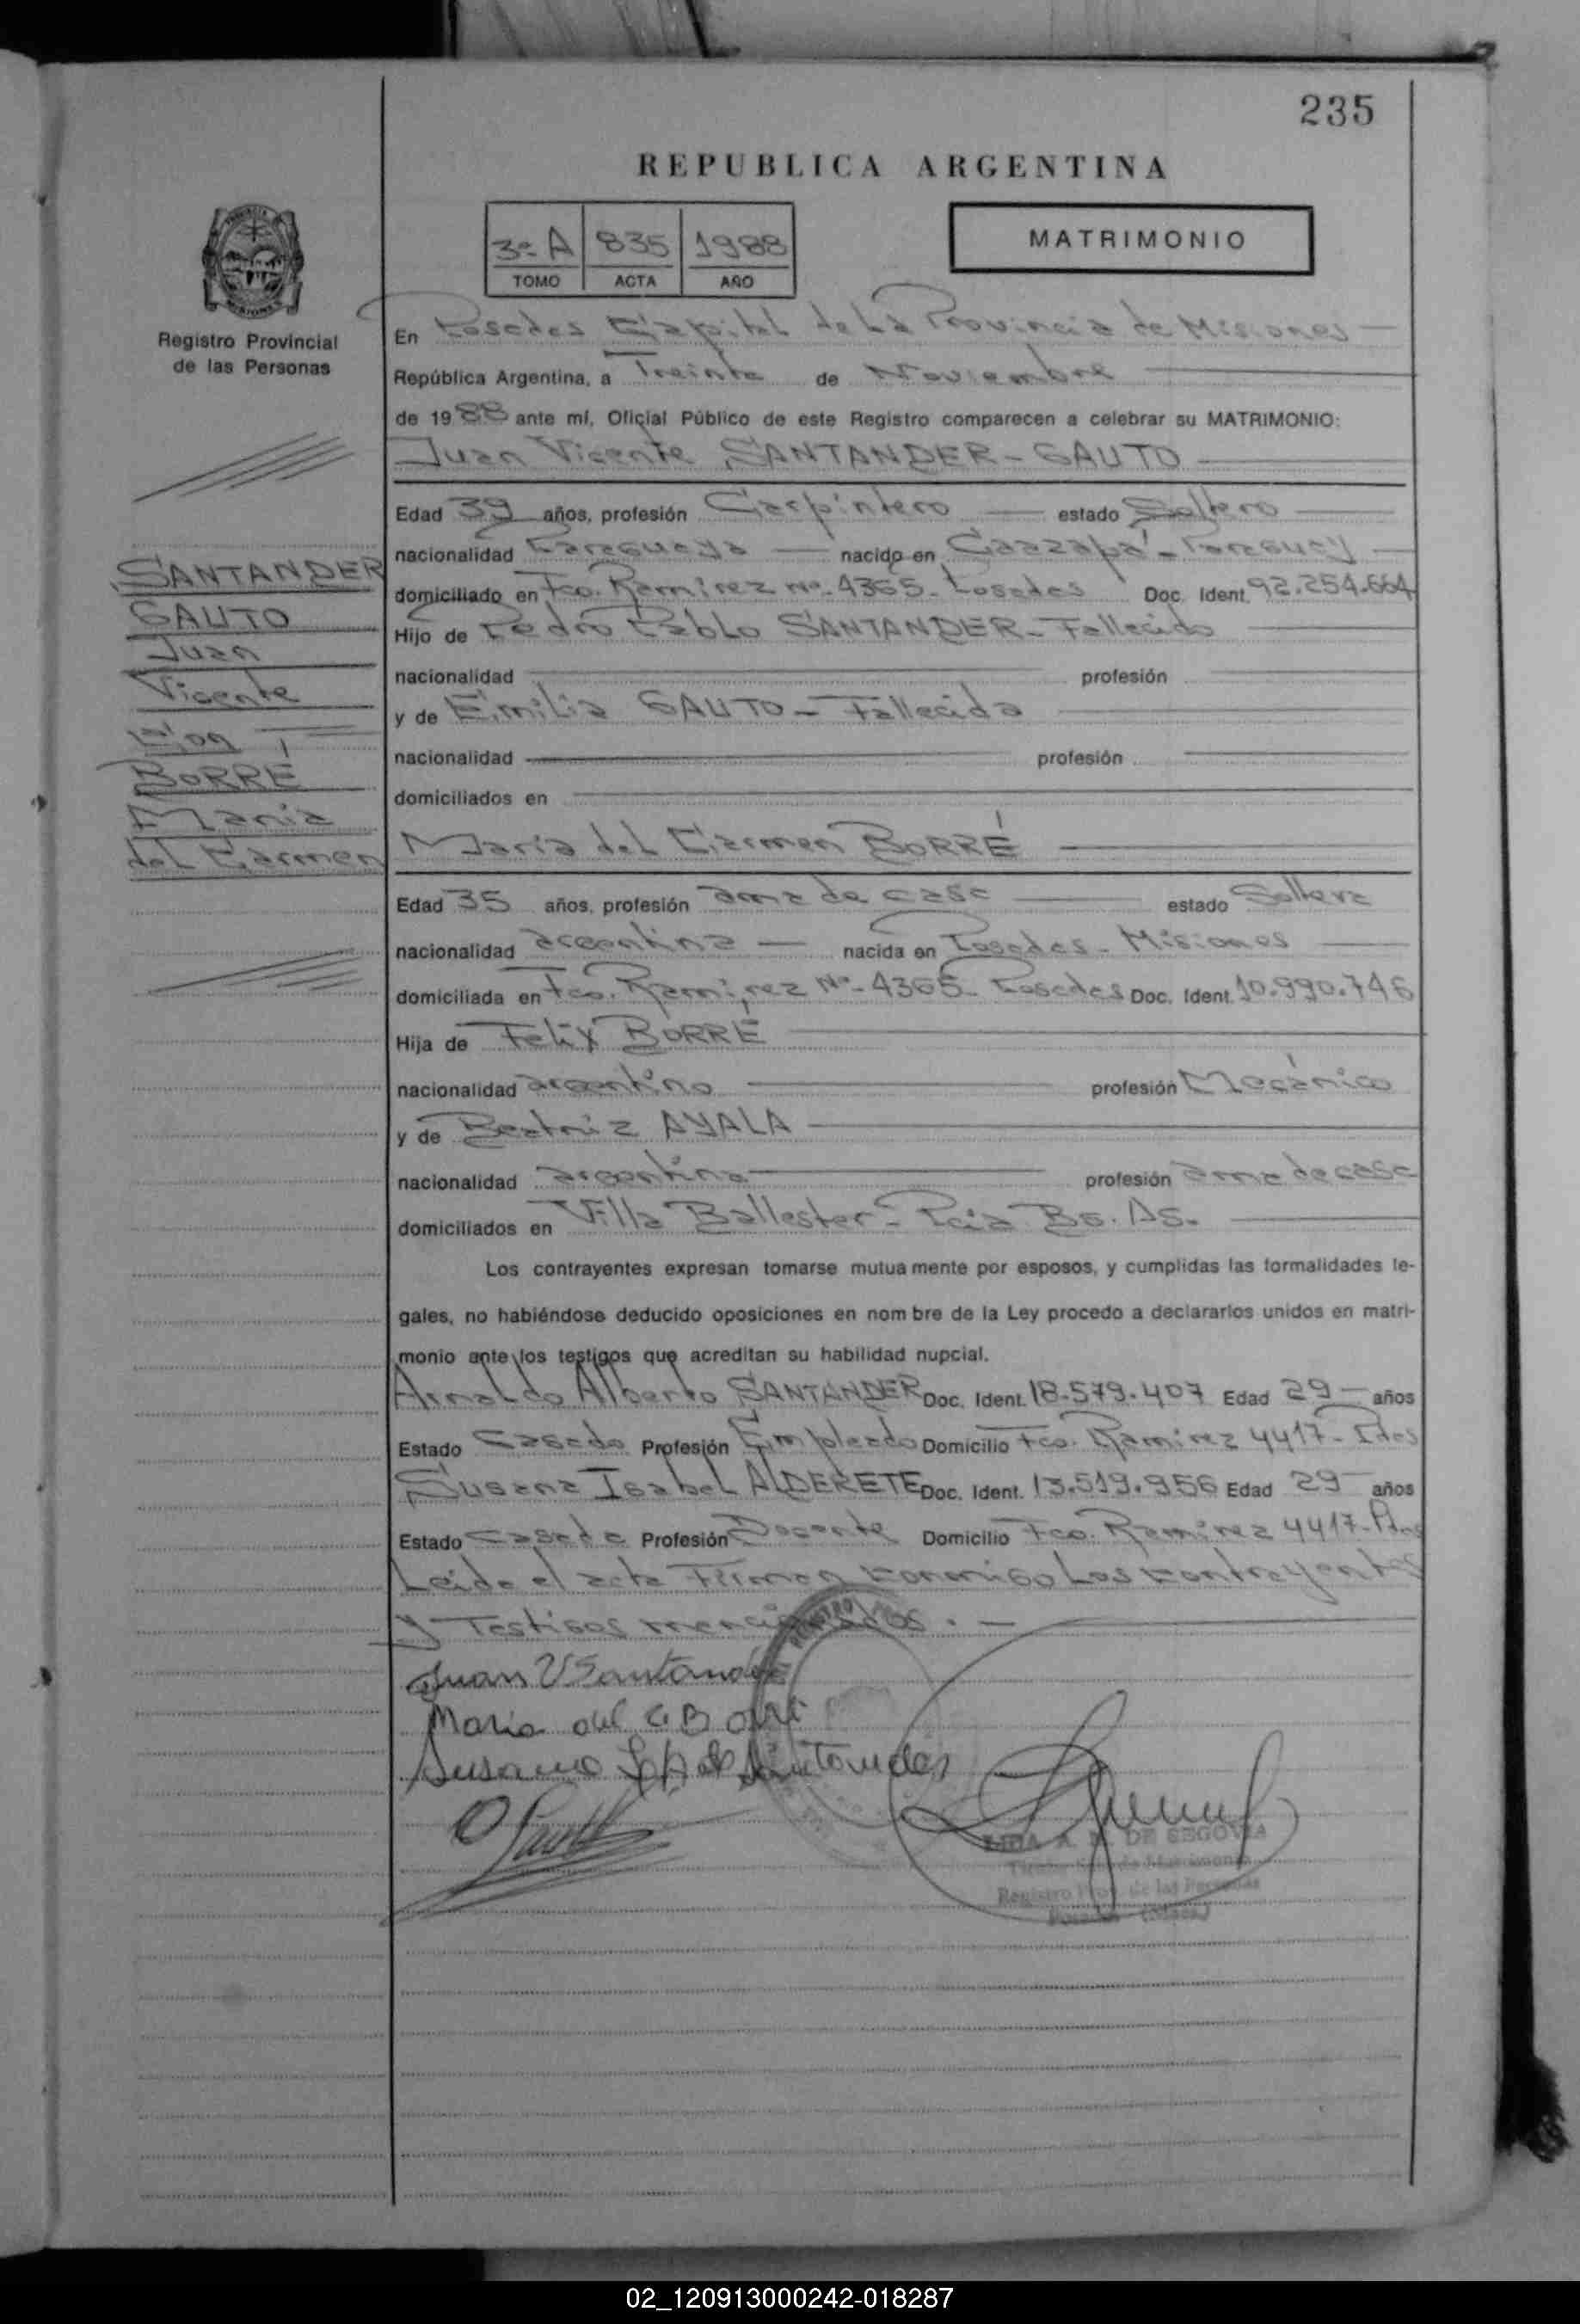 235
REPUBLICA ARGENTINA
3º A 835 1988
TOMO ACTA AÑO
MATRIMONIO
Registro Provincial
de las Personas
En Posadas Capital de La Provincia de Misiones
República Argentina, a Treinta de Noviembre
de 1988 ante mí, Oficial Público de este Registro comparecen a celebrar su MATRIMONIO:
Juan Vicente SANTANDER - GAUTO
Edad 39 años, profesión Carpintero estado Soltero
nacionalidad Paraguaya nacido en Caazapá - Paraguay
domiciliado en Fco. Ramirez Nº 4365 - Posadas Doc. Ident. 92.254.664
Hijo de Pedro Pablo SANTANDER - Fallecido
nacionalidad profesión
y de Emilia GAUTO - Fallecida
nacionalidad profesión
domiciliados en
SANTANDER
GAUTO
Juan
Vicente
con
BORRÉ
Maria
del Carmen
Maria del Carmen BORRÉ
Edad 35 años, profesión ama de casa estado Soltera
nacionalidad argentina nacida en Posadas - Misiones
domiciliada en Fco. Ramirez Nº 4365 - Posadas Doc. Ident. 10.990.746
Hija de Felix BORRÉ
nacionalidad argentino profesión Mecánico
y de Beatriz AYALA
nacionalidad argentina profesión ama de casa
domiciliados en Villa Ballester - Pcia Bs. As.
Los contrayentes expresan tomarse mutua mente por esposos, y cumplidas las formalidades le-
gales, no habiéndose deducido oposiciones en nom bre de la Ley procedo a declararlos unidos en matri-
monio ante los testigos que acreditan su habilidad nupcial.
Arnaldo Alberto SANTANDER Doc. Ident. 18.579.407 Edad 29 años
Estado Casado Profesión Empleado Domicilio Fco. Ramirez 4417 - Pdas
Susana Isabel ALDERETE Doc. Ident. 13.519.956 Edad 29 años
Estado Casada Profesión Docente Domicilio Fco. Ramirez 4417 - Pdas
Leida el acta Firman conmigo Los contrayentes
y Testigos mencionados.
Juan V Santander
Maria del C Borré
Susana de Santander
A. DE SEGOVIA
Registro Prov. de las Personas
02_120913000242-018287